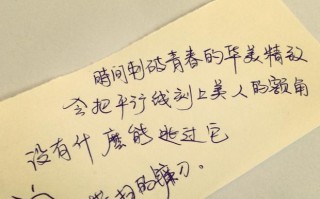 時間刺破青春的华美精致
会把平行线刻上美人的额角
没有什麼能逃过它
的鐮刀。